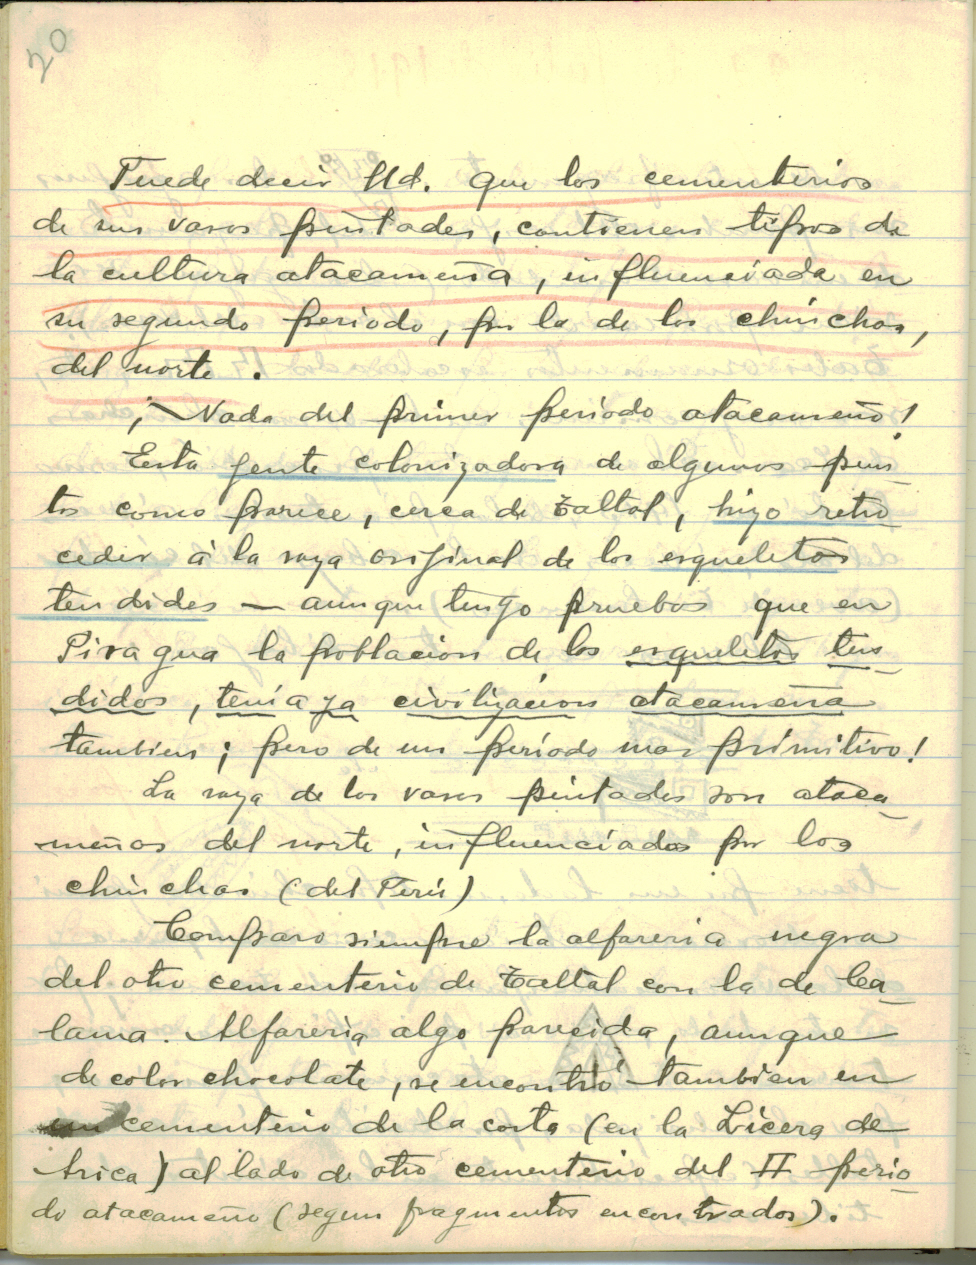 20
Puede decir Ud. que los cementerios
de sus vasos pintados, contienen tipos de
la cultura atacameña, influenciada en
su segundo periodo, por la de los chinchas,
del norte.
¡Nada del primer periodo atacameño!
Esta gente colonizadora de algunos pun-
tos como parece, cerca de Taltal, hizo retro
ceder á la raza orijinal de los esqueletos
tendidos — aunque tengo pruebas que en
Piragua la poblacion de los esqueletos ten-
didos, tenía ya civilización atacameña
tambien; pero de un periodo mas primitivo!
La raza de los vasos pintados son ataca-
meños del norte, influenciados por los
chinchas (del Perú)
Comparo siempre la alfareria negra
del otro cementerio de Taltal con la de Ca-
lama. Alfareria algo parecida, aunque
de color chocolate, se encontró tambien en
un cementerio de la costa (en la Licera de
Arica) al lado de otro cementerio del II perio-
do atacameño (segun fragmentos encontrados).